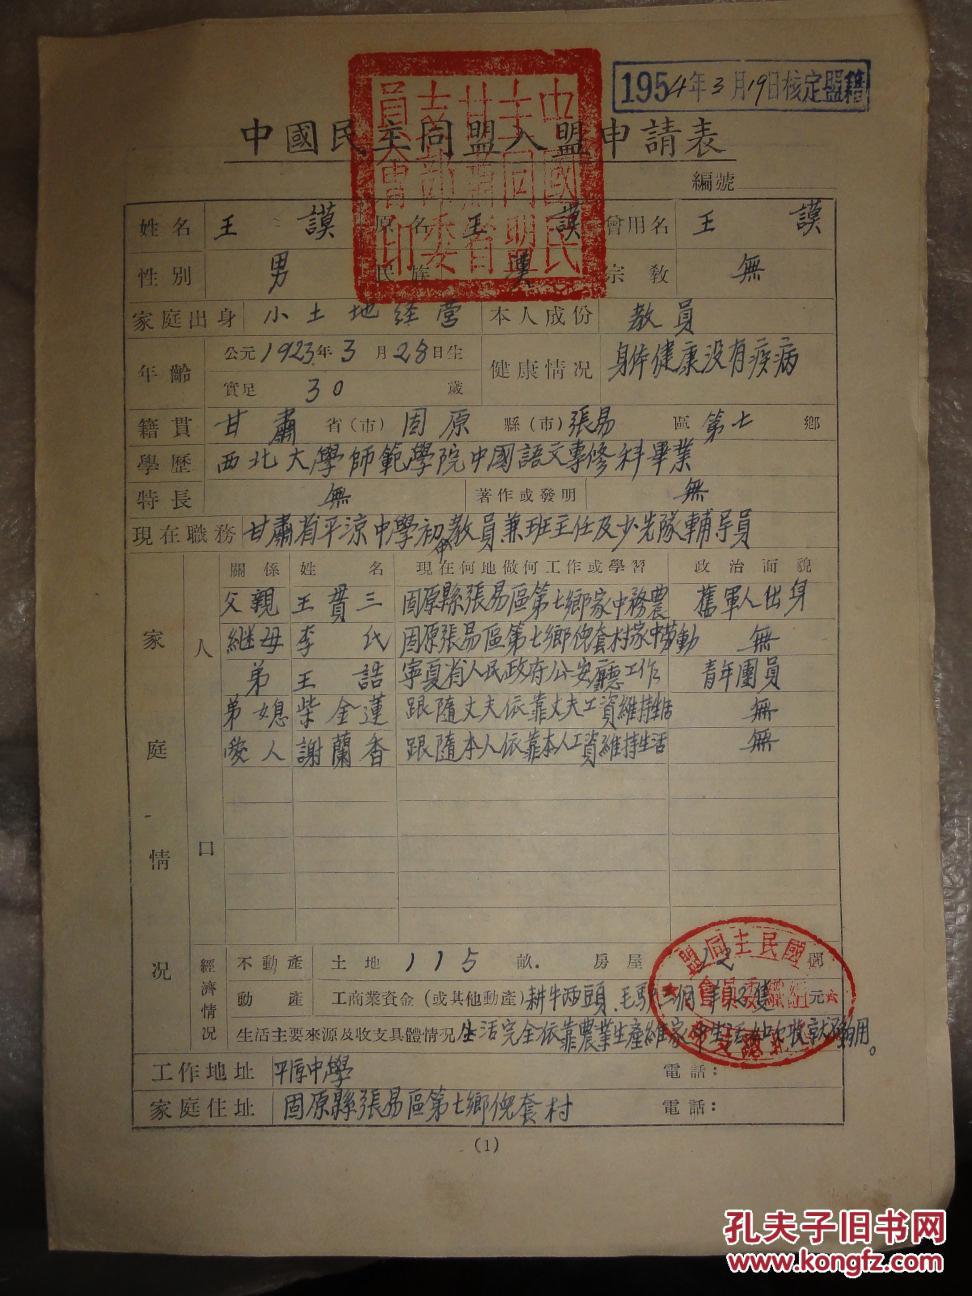 1954年3月19日核定盟籍
中國民主同盟入盟申請表
編號
姓名 王謨 原名 王謨 曾用名 王謨
性別 男 民族 漢 宗教 無
家庭出身 小土地経营 本人成份 教員
年齡 公元1923年3月28日生 健康情况 身体健康没有疾病
實足 30 歲
籍貫 甘肅省(市) 固原縣(市) 張易區 第七鄉
學歷 西北大學師範學院中國語文專修科畢業
特長 無 著作或發明 無
現在職務 甘肅省平凉中學初中教員兼班主任及少先隊輔导員
家庭情况 人口 關係 姓名 現在何地做何工作或學習 政治面貌
父親 王貫三 固原縣張易區第七鄉家中務農 舊軍人出身
継母 李氏 固原張易區第七鄉倪套村家中劳動 無
弟 王誥 寧夏省人民政府公安廳工作 青年團員
弟媳 柴金蓮 跟隨丈夫依靠丈夫工資維持生活 無
愛人 謝蘭香 跟隨本人依靠本人工資維持生活 無
經濟情况 不動產 土地 115 畝. 房屋 間
動產 工商業資金(或其他動產) 耕牛两頭 毛驴 隻 元
生活主要來源及收支具體情况 生活完全依靠農業生產維 用。
工作地址 平凉中學 電話:
家庭住址 固原縣張易區第七鄉倪套村 電話:
(1)
中國民主同盟甘肅省支部委員會印
孔夫子旧书网
www.kongfz.com